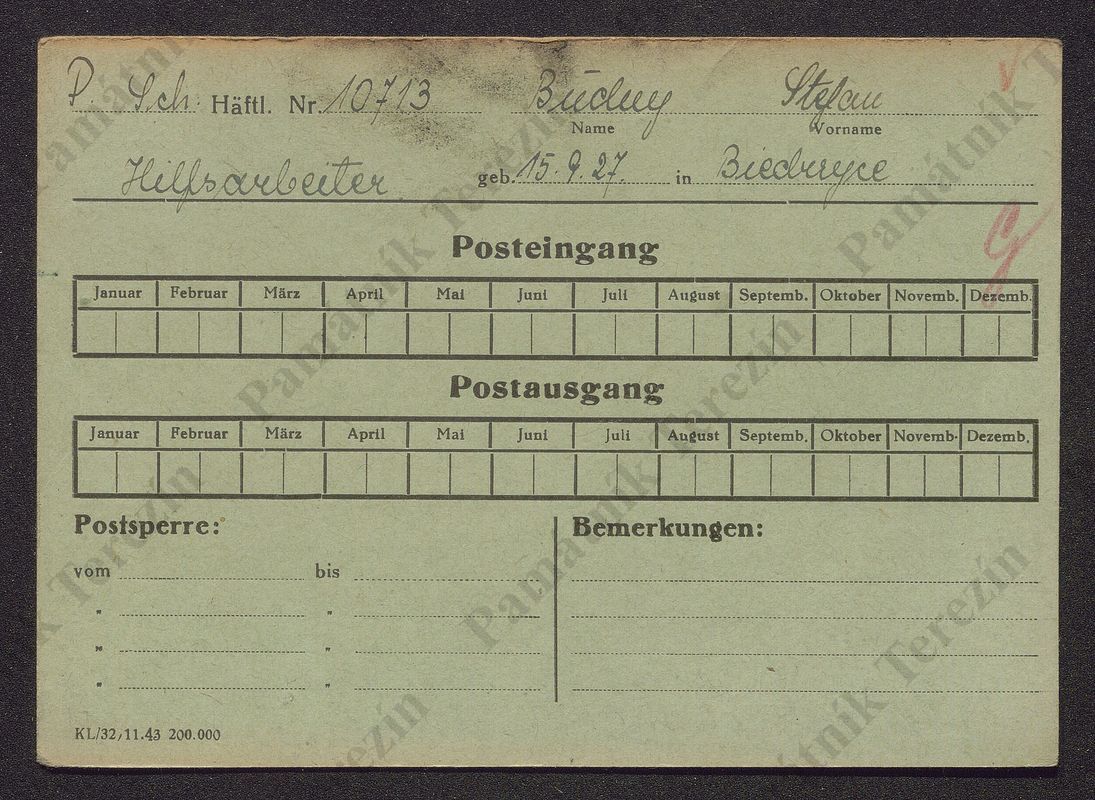 P. Sch. Häftl. Nr. 10713 Budny Stefan
Name Vorname
Hilfsarbeiter geb. 15. 9. 27. in
Posteingang
Januar Februar März April Mai Juni Juli August Septemb. Oktober Novemb. Dezemb.
Postausgang
Januar Februar März April Mai Juni Juli August Septemb. Oktober Novemb. Dezemb.
Postsperre: Bemerkungen:
vom bis
" "
" "
" "
KL/32, 11.43 200.000
Památník Terezín